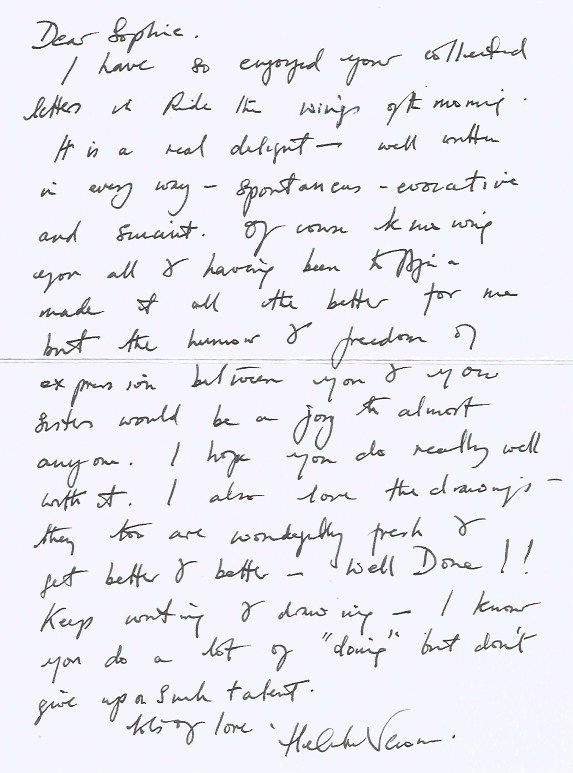 Dear Sophie.
I have so enjoyed your collected
letters in Ride the wings of the morning.
It is a real delight — well written
in every way — spontaneous — evocative
and succint. Of course knowing
you all & having been to
made it all the better for me
but the humour & freedom of
expression between you & your
sisters would be a joy to almost
anyone. I hope you do really well
with it. I also love the drawings —
they too are wonderfully fresh &
get better & better — Well Done!!
Keep writing & drawing — I know
you do a lot of "doing" but don't
give up on such talent.
lots of love.